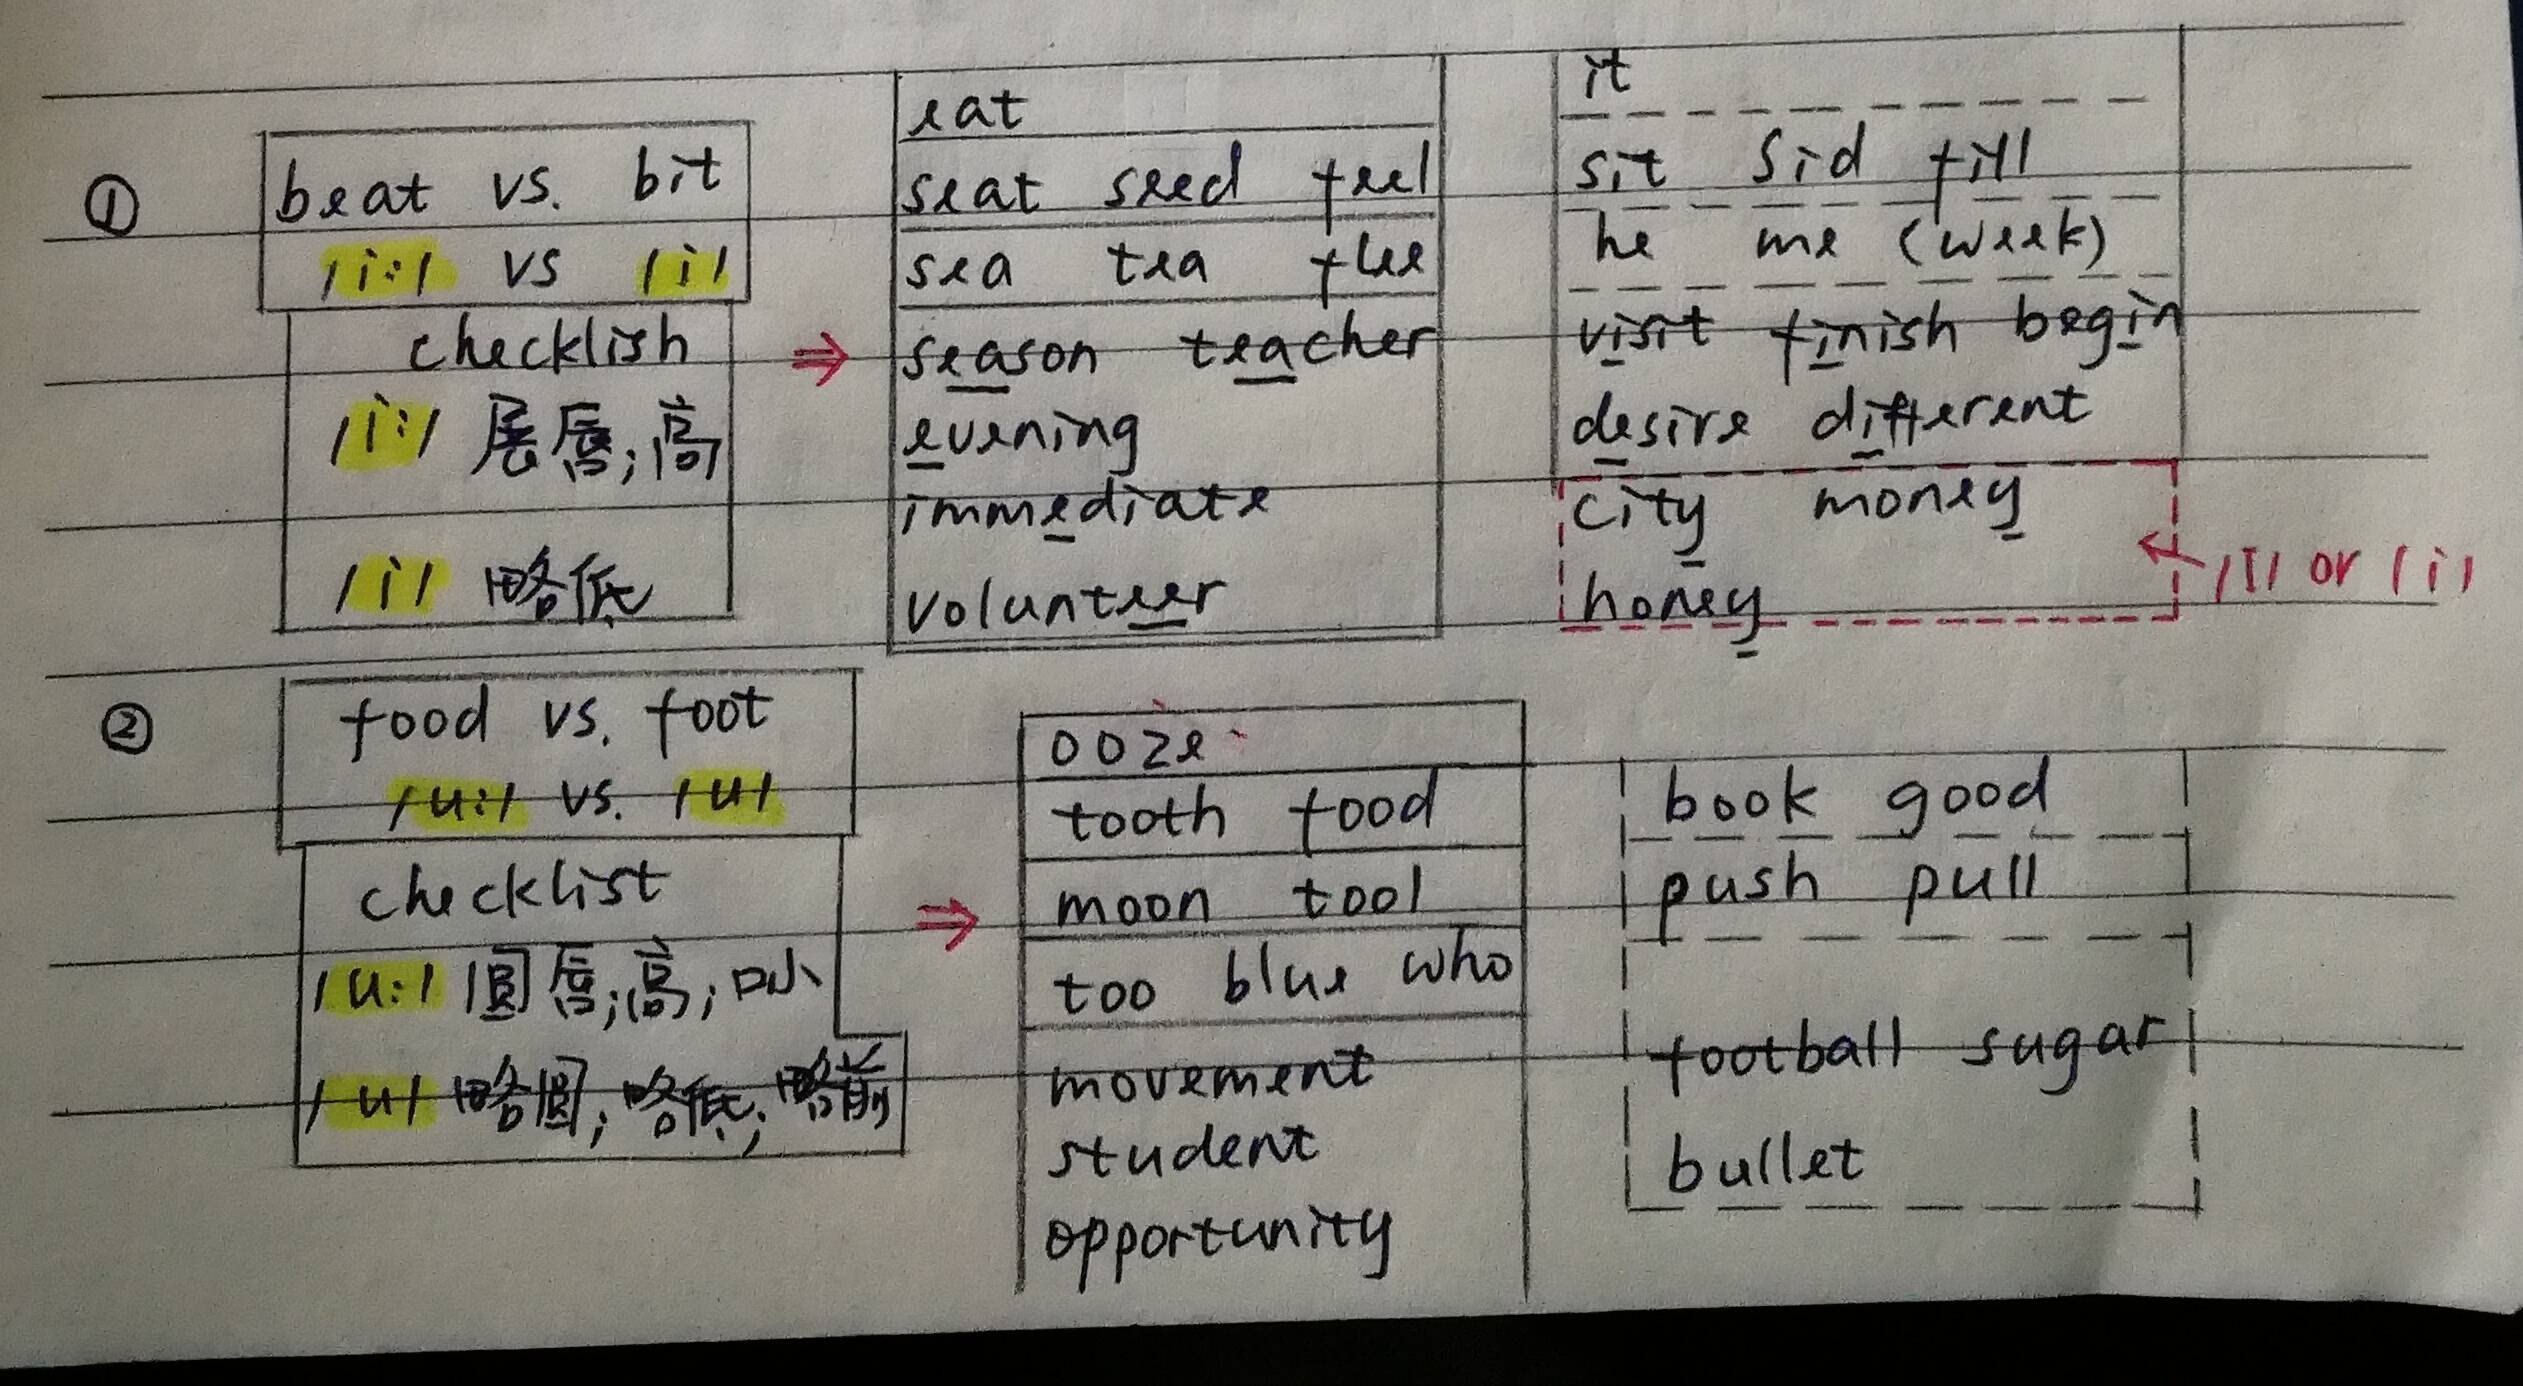 ①
beat vs. bit
/i:/ vs /i/
checklish
/i:/ 展唇;高
/i/ 略低
⇒
eat
seat seed feel
sea tea flee
season teacher
evening
immediate
volunteer
it
sit Sid fill
he me (week)
visit finish begin
desire different
city money
honey
← /I/ or /i/
②
food vs. foot
/u:/ vs. /u/
checklist
/u:/ 圆唇;高;口小
/u/ 略圆;略低;略前
⇒
ooze
tooth food
moon tool
too blue who
movement
student
opportunity
book good
push pull
football sugar
bullet